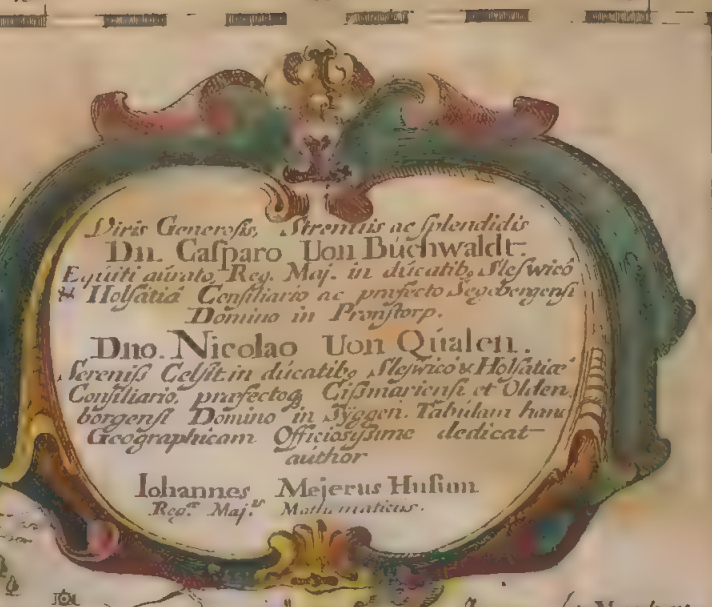 Viris Generosis, Strenuis ac splendidis
Dn. Casparo Von Buchwaldt
Equiti aurato, Reg. Maj. in ducatib9 Sleswico
& Holsatia Consiliario ac præfecto Segebergensi
Domino in Pronstorp.
Dno. Nicolao Von Qualen.
Sereniss Celsit in ducatib9 Sleswico & Holsatiæ
Consiliario, præfectoq3 Cißmariensi et Olden
borgensi Domino in Syggen. Tabulam hanc
Geographicam Officiosissime dedicat
author
Iohannes Mejerus Husum
Regæ Majts Mathematicus.